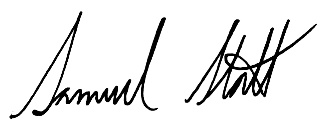 Samuel Statt